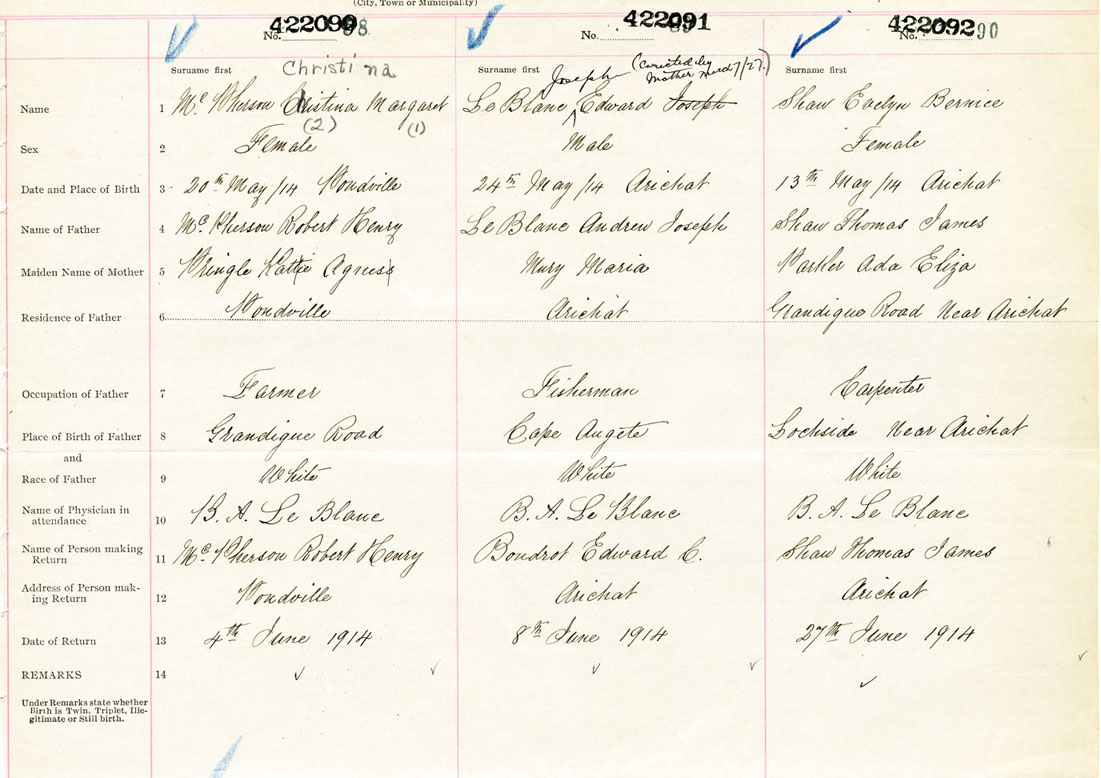 (City, Town or Municipality)
422090 88 422091 89 422092 90
No. No. No.
Surname first Christina Surname first Joseph (Corrected by Mother March 7/27.) Surname first
Name 1 Mc Pherson Christina Margaret Le Blanc Edward Joseph Shaw Evelyn Bernice
(2) (1)
Sex 2 Female Male Female
Date and Place of Birth 3 20th May/14 Pondville 24th May/14 Arichat 13th May/14 Arichat
Name of Father 4 Mc Pherson Robert Henry Le Blanc Andrew Joseph Shaw Thomas James
Maiden Name of Mother 5 Pringle Katie Agness Mury Maria Parker Ada Eliza
Residence of Father 6 Pondville Arichat Grandique Road Near Arichat
Occupation of Father 7 Farmer Fisherman Carpenter
Place of Birth of Father 8 Grandique Road Cape Augete Lochside Near Arichat
and
Race of Father 9 White White White
Name of Physician in attendance 10 B. A. Le Blanc B. A. Le Blanc B. A. Le Blanc
Name of Person making Return 11 Mc Pherson Robert Henry Boudrot Edward C. Shaw Thomas James
Address of Person making Return 12 Pondville Arichat Arichat
Date of Return 13 4th June 1914 8th June 1914 27th June 1914
REMARKS 14
Under Remarks state whether
Birth is Twin, Triplet, Ille-
gitimate or Still birth.